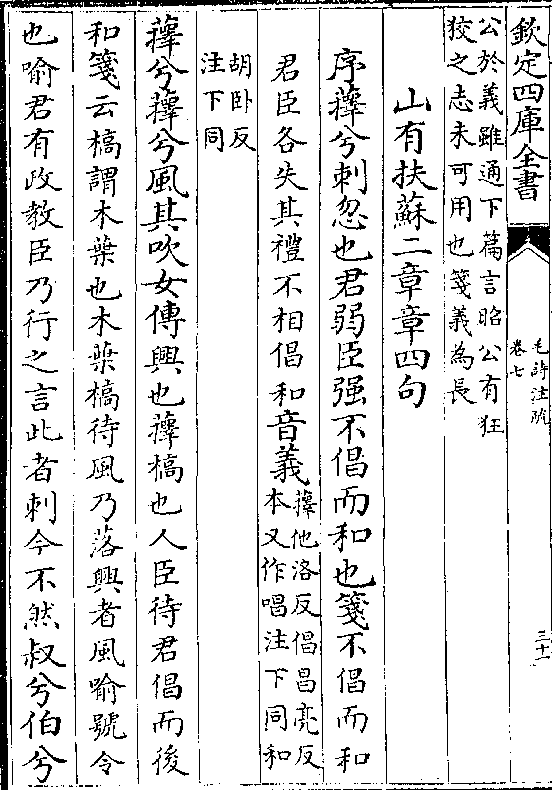 欽定四庫全書
毛詩注疏
卷七
三十一
公於義雖通下篇言昭公有狂
狡之志未可用也箋義為長
山有扶蘇二章章四句
序蘀兮刺忽也君弱臣强不倡而和也箋不倡而和
君臣各失其禮不相倡和音義
蘀他洛反倡昌亮反
本又作唱注下同和
胡卧反
注下同
蘀兮蘀兮風其吹女傳興也蘀槁也人臣待君倡而後
和箋云槁謂木葉也木葉槁待風乃落興者風喻號令
也喻君有政教臣乃行之言此者刺今不然叔兮伯兮